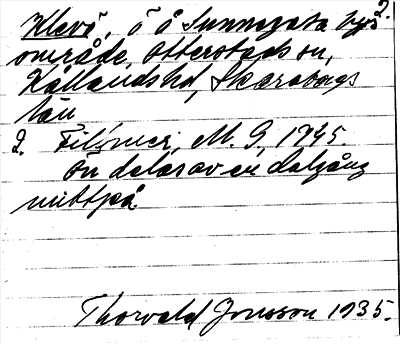 2.
Klevö, ö å Sunnersta bys
område, Otterstads sn,
Kållandshd, Skaraborgs
län
2. Filémer, M. G., 1945.
Ön delas av en dalgång
mittpå
Thorvald Jonsson 1935.